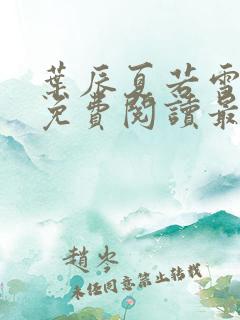 葉辰夏若雪
免費閱讀最
趙岑
未經同意禁止轉載